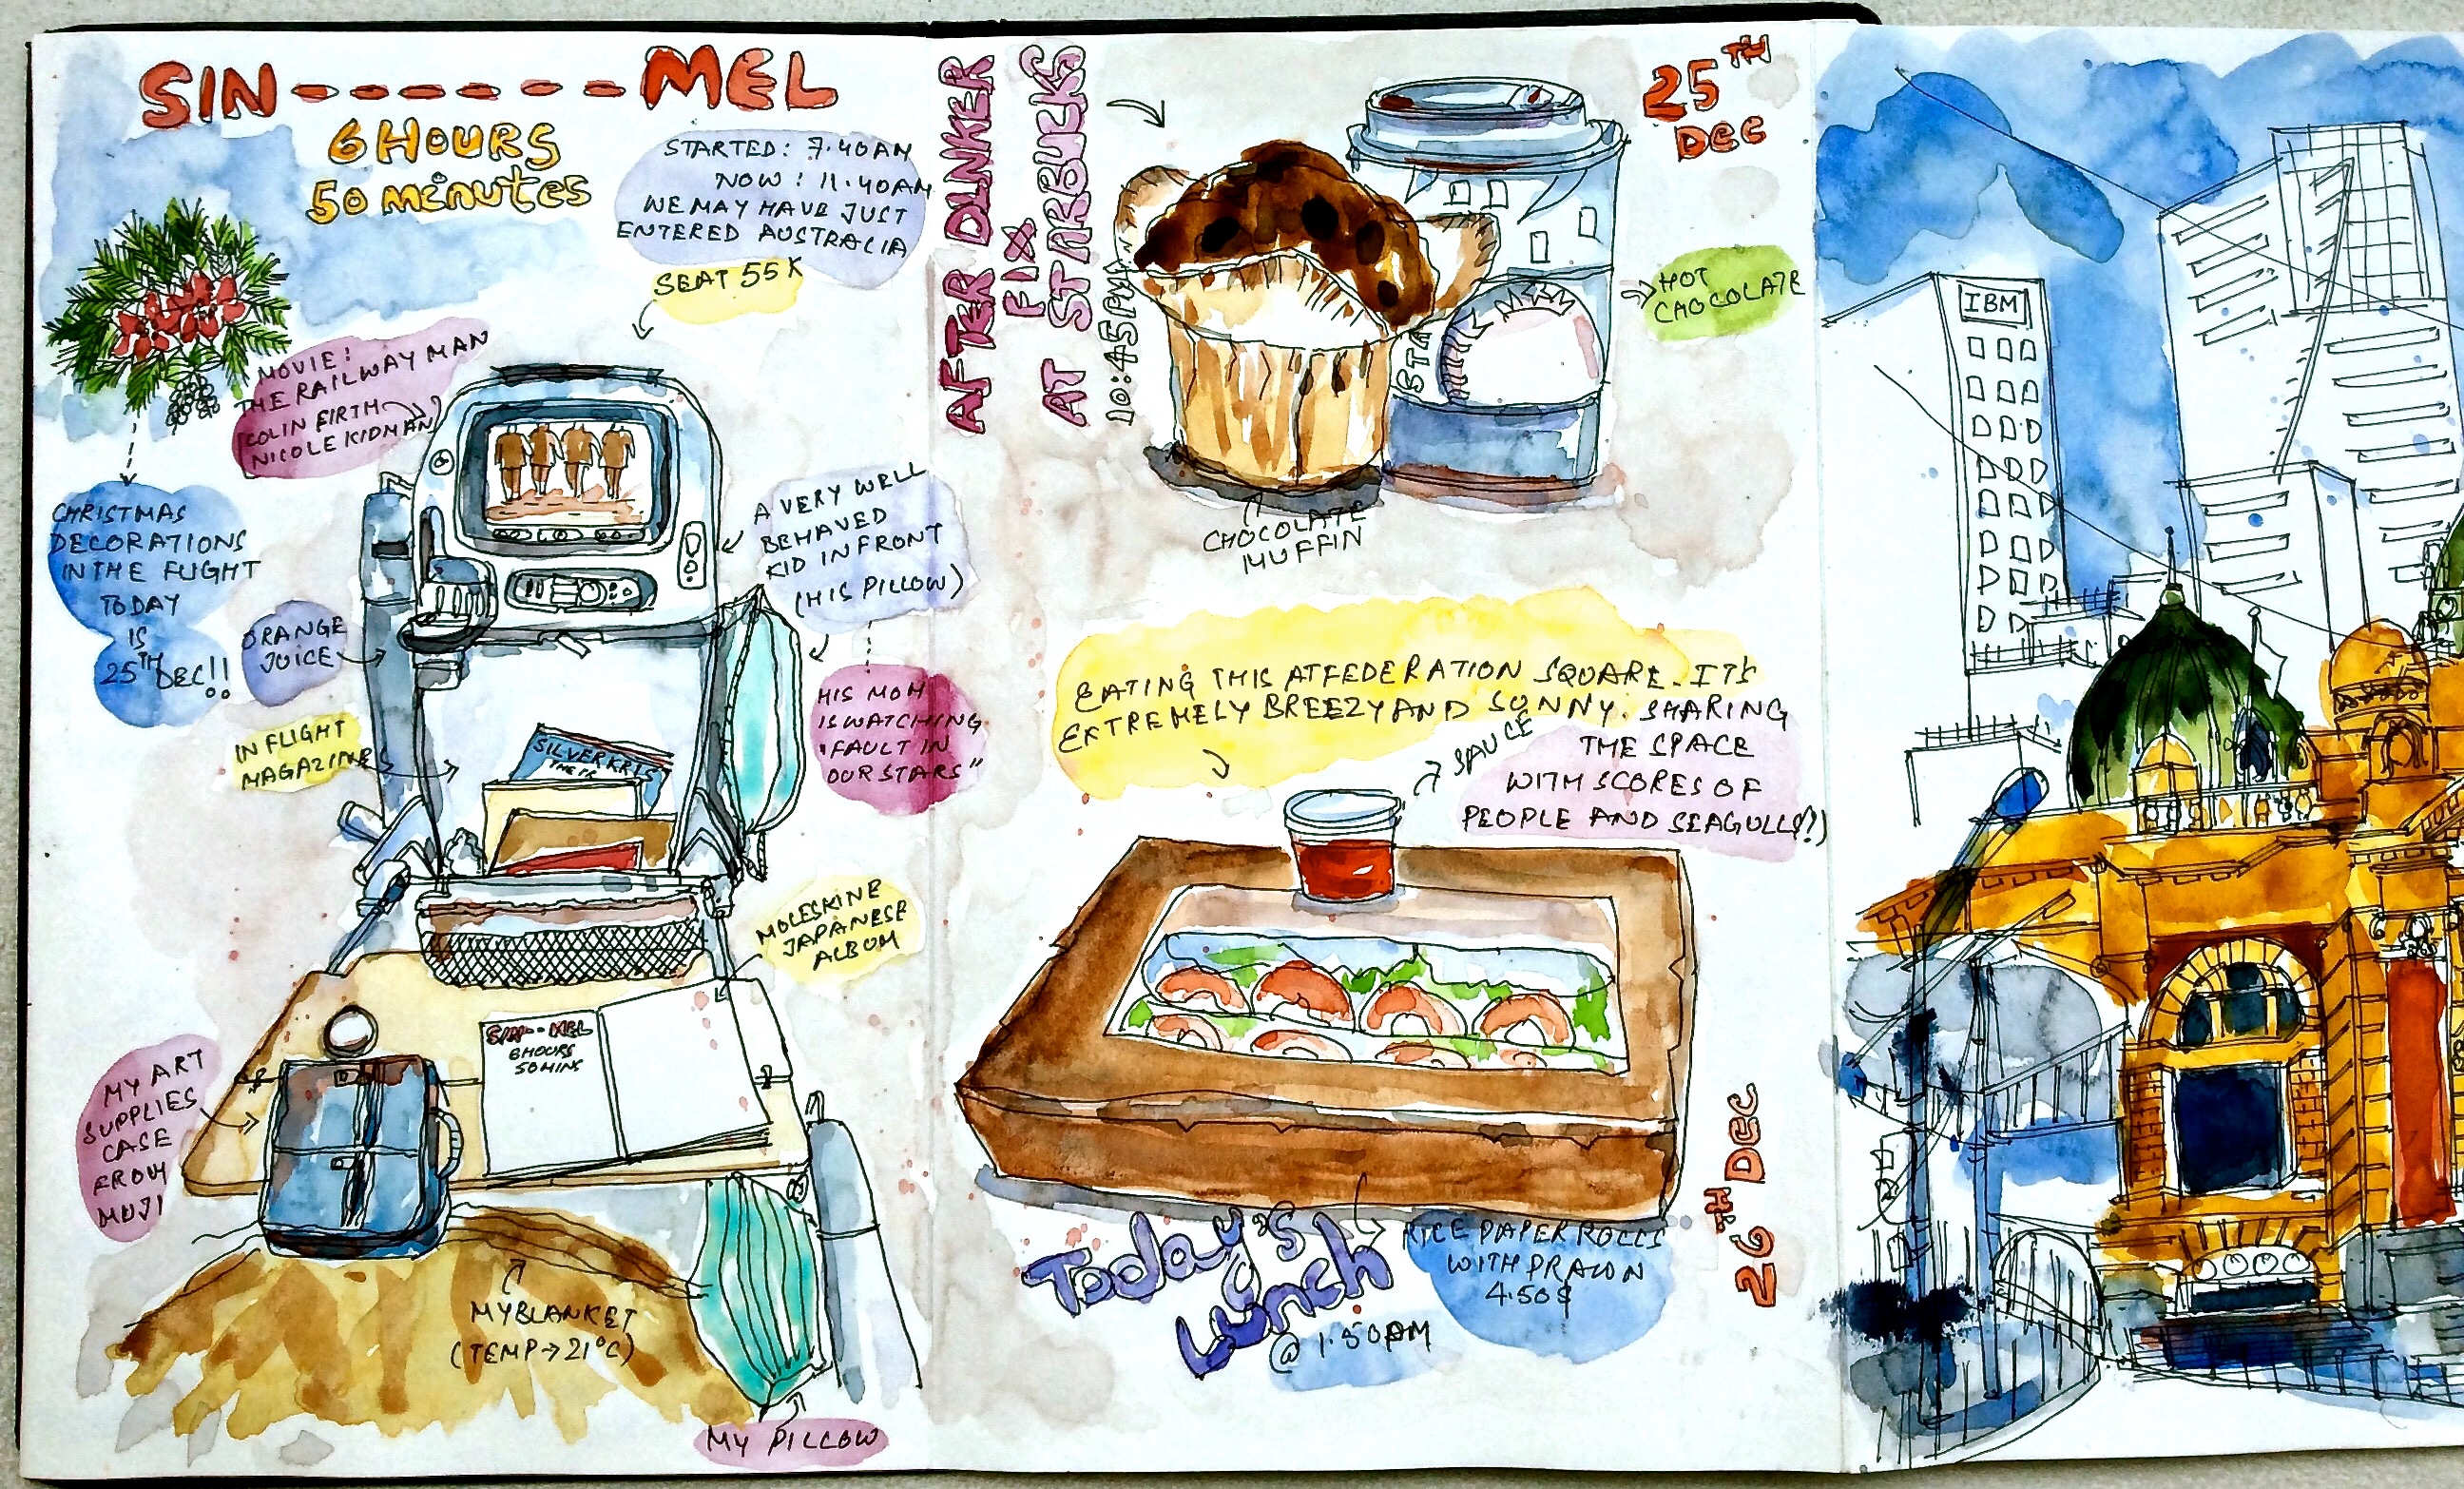 SIN------MEL
6 HOURS
50 minutes
STARTED: 7.40AM
NOW: 11.40AM
WE MAY HAVE JUST
ENTERED AUSTRALIA
SEAT 55K
MOVIE:
THE RAILWAY MAN
COLIN FIRTH
NICOLE KIDMAN
CHRISTMAS
DECORATIONS
IN THE FLIGHT
TODAY
IS
25TH DEC!!
A VERY WELL
BEHAVED
KID IN FRONT
(HIS PILLOW)
ORANGE
JUICE
HIS MOM
IS WATCHING
"FAULT IN
OUR STARS"
IN FLIGHT
MAGAZINES
SILVERKRIS
MOLESKINE
JAPANESE
ALBUM
SIN--MEL
6 HOURS
50 MINS
MY ART
SUPPLIES
CASE
FROM
MUJI
MY BLANKET
(TEMP→21°C)
MY PILLOW
AFTER DINNER
FIX
AT STARBUCKS
10:45PM
25TH
DEC
STA
HOT
CHOCOLATE
CHOCOLATE
MUFFIN
EATING THIS AT FEDERATION SQUARE. IT'S
EXTREMELY BREEZY AND SUNNY. SHARING
THE SPACE
WITH SCORES OF
PEOPLE AND SEAGULLS(!)
SAUCE
Today's
Lunch
@ 1.50PM
RICE PAPER ROLLS
WITH PRAWN
4.50$
26TH DEC
IBM